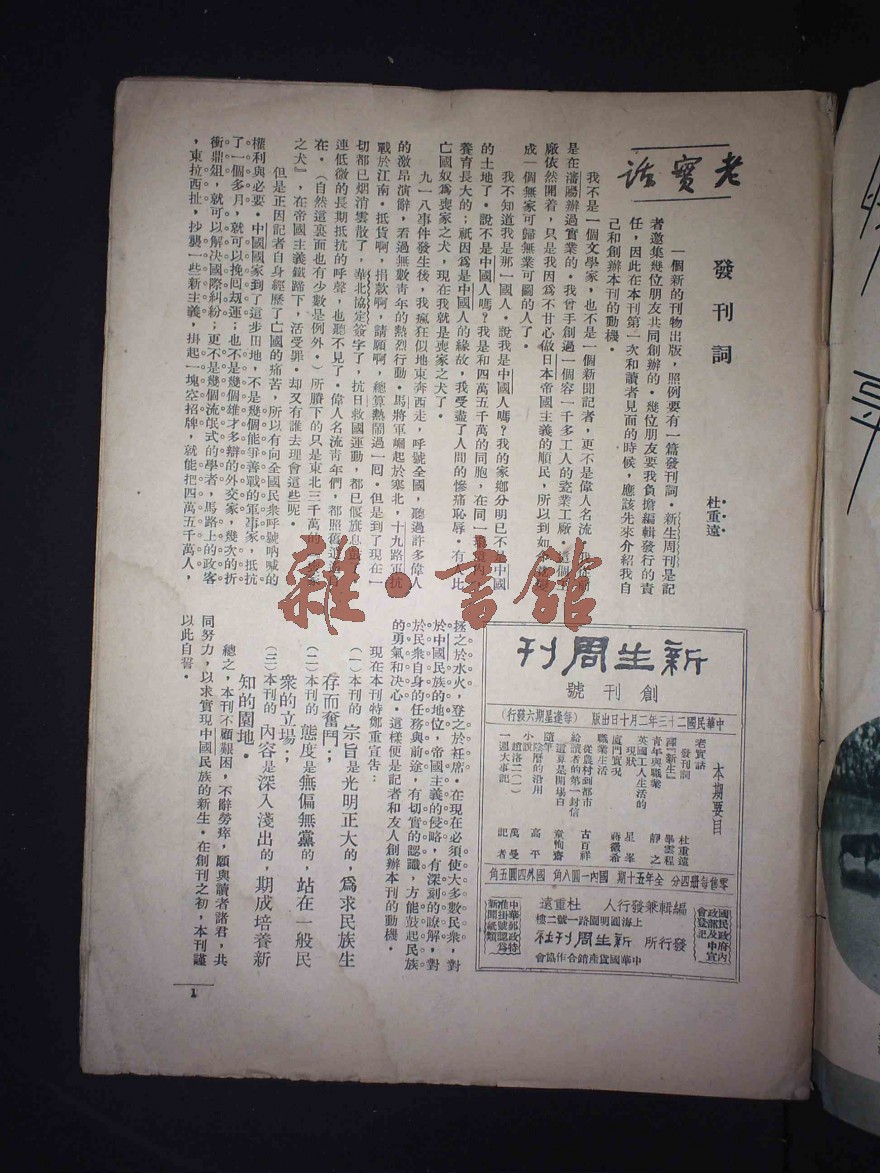 老實話
發刊詞
杜重遠
一個新的刊物出版，照例要有一篇發刊詞。新生周刊是記
者邀集幾位朋友共同創辦的。幾位朋友要我負擔編輯發行的責
任，因此在本刊第一次和讀者見面的時候，應該先來介紹我自
己和創辦本刊的動機。
我不是一個文學家，也不是一個新聞記者，更不是偉人名流。
是在瀋陽辦過實業的。我曾手創過一個容一千多工人的瓷業工廠。這個工
廠依然開着，只是我因爲不甘心做日本帝國主義的順民，所以到如今
成一個無家可歸無業可圖的人了。
我不知道我是那一國人。說我是中國人嗎？我的家鄉分明已不是中國
的土地了。說不是中國人嗎？我是和四萬五千萬的同胞，在同一
養育長大的；祇因爲是中國人的緣故，我受盡了人間的慘痛恥辱。有人比
亡國奴爲喪家之犬，現在我就是喪家之犬了。
九一八事件發生後，我瘋狂似地東奔西走，呼號全國，聽過許多偉人
的激昂演辭，看過無數青年的熱烈行動。馬將軍崛起於塞北，十九路軍抗
戰於江南。抵貨啊，捐款啊，請願啊，總算熱鬧過一囘。但是到了現在一
切都已烟消雲散了，華北協定簽字了，抗日救國運動，都已偃旗息鼓了，
連低微的長期抵抗的呼聲，也聽不見了。偉人名流青年們，都照舊
在。（自然這裏面也有少數是例外。）所賸下的只是東北三千萬的
之犬』，在帝國主義鐵蹄下，活受罪。却又有誰去理會這些呢。
但是正因記者自身經歷了亡國的痛苦，所以有向全國民衆呼號吶喊的
權利與必要。中國國家到了這步田地，不是幾個能爭善戰的軍事家，抵抗
了一個多月，就可以挽囘刼運；也不是幾個雄才多辯的外交家，幾次的折
衝鼎俎，就可以解決國際糾紛；更不是幾個流氓式的學者，馬路上的政客
，東拉西扯，抄襲一些新主義，掛起一塊空招牌，就能把四萬五千萬人，
拯之於水火，登之於袵席。在現在必須使大多數民衆，對
於中國民族的地位，帝國主義的侵略，有深刻的諒解，對
於民衆自身的任務與前途，有切實的認識，方能鼓起民族
的勇氣和決心。這樣便是記者和友人創辦本刊的動機。
現在本刊特鄭重宣告：
（一）本刊的宗旨是光明正大的，爲求民族生
存而奮鬥；
（二）本刊的態度是無偏無黨的，站在一般民
衆的立場；
（三）本刊的內容是深入淺出的，期成培養新
知的園地。
總之，本刊不顧艱困，不辭勞瘁，願與讀者諸君，共
同努力，以求實現中國民族的新生。在創刊之初，本刊謹
以此自誓。
新生周刊
創刊號
中華民國二十三年二月十日出版（每逢星期六發行）
本期要目
老實話
發刊詞 杜重遠
釋『新生』 畢雲程
青年與職業 靜之
英國工人生活的
現狀 星峯
廈門實況 蔣徽希
職業生活
從農村到都市 古百祥
給讀者的第一封信
這算是開場白 童恂齋
隨筆
陰曆的沿用 高平
小說
趙洛二（一） 萬曼
一週大事記 記者
零售每册四分 全年五十期 國內一圓八角 國外四圓五角
國民政府內政部及中宣會登記
編輯兼發行人 杜重遠
上海圓明園路一號二樓
發行所 新生周刊社
中華國貨產銷合作協會
中華郵政特准掛號認爲新聞紙類
1
雜·書館